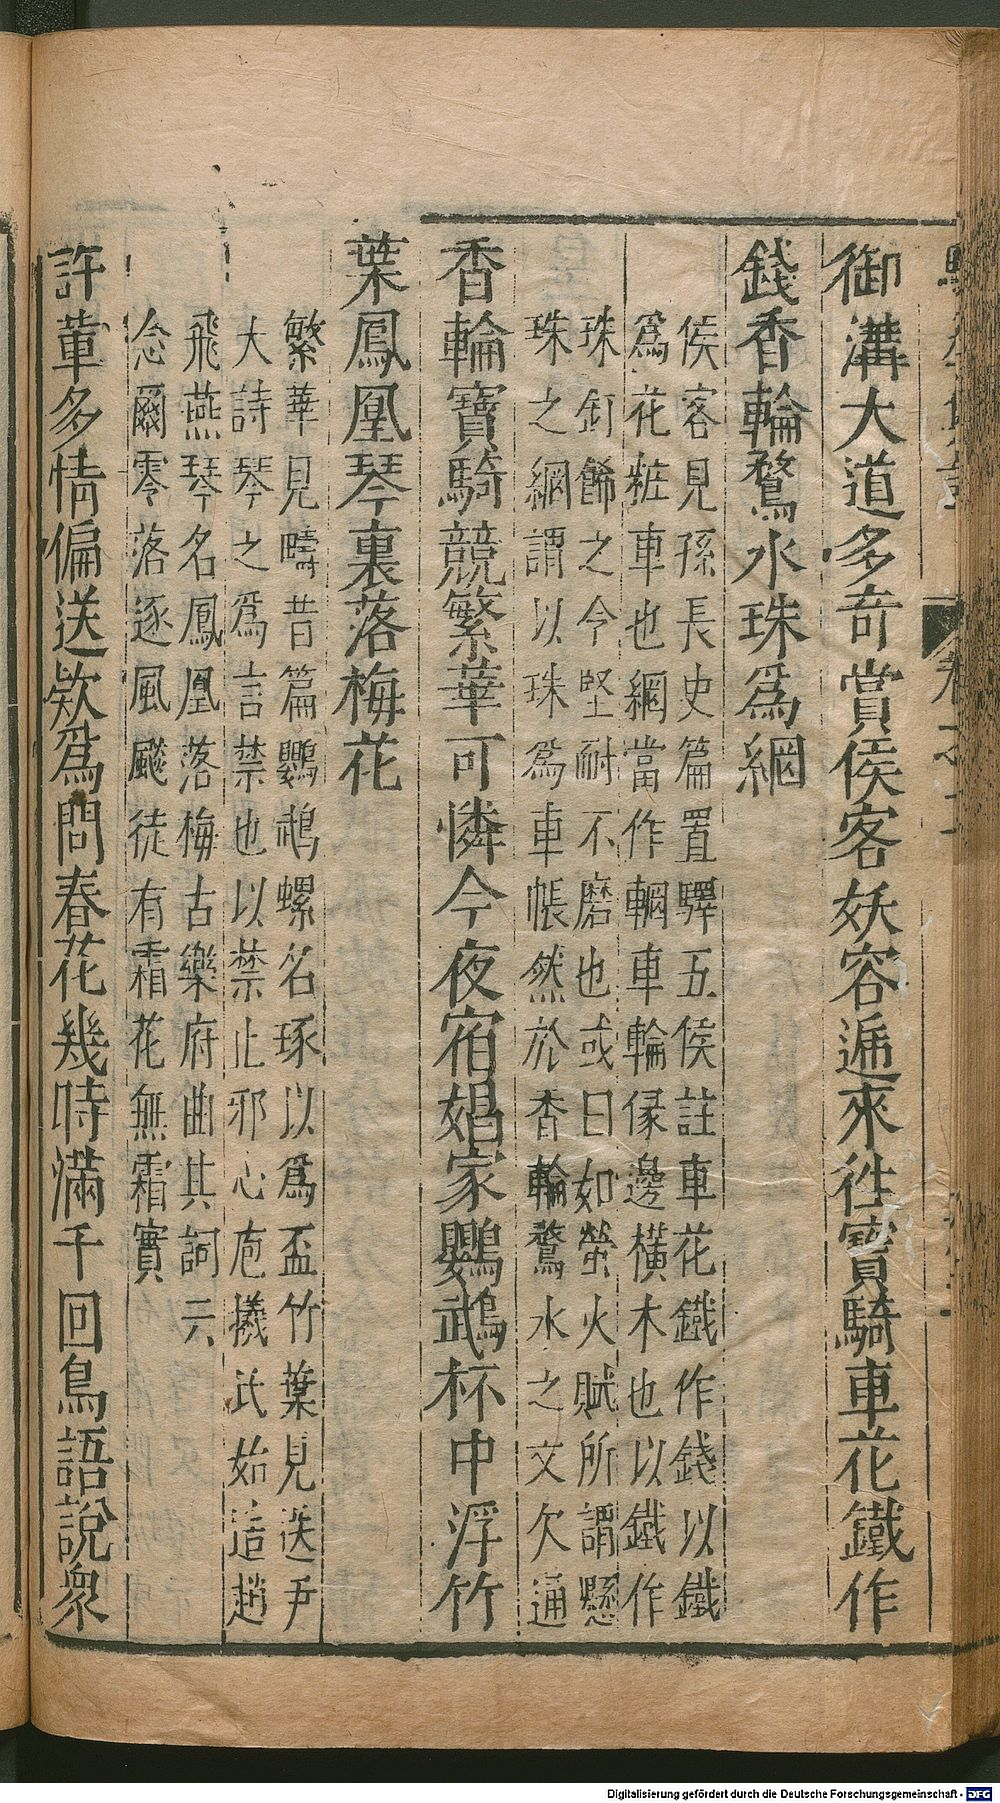 御溝大道多奇賞侯客妖容遞來徃寶騎車花鐵作
錢香輪鶩水珠爲網
侯客見孫長史篇置驛五侯註車花鐵作錢以鐵
爲花粧車也網當作輞車輪㒸邊橫木也以鐵作
珠釘餙之今堅耐不磨也或曰如螢火賦所謂懸
珠之網謂以珠爲車帳然於香輪鶩水之文欠通
香輪寶騎競繁華可憐今夜宿娼家鸚鵡杯中浮竹
葉鳳凰琴裏落梅花
繁華見疇昔篇鸚鵡螺名琢以爲盃竹葉見送尹
大詩琴之爲言禁也以禁止邪心庖犧氏始造趙
飛燕琴名鳳凰落梅古樂府曲其詞云
念爾零落逐風颷徒有霜花無霜實
許輩多情偏送欵爲問春花幾時滿千回鳥語說衆
Digitalisierung gefördert durch die Deutsche Forschungsgemeinschaft - DFG